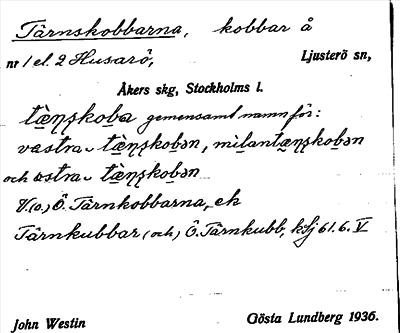 Tärnskobbarna, kobbar å
nr 1 el. 2 Husarö, Ljusterö sn,
Åkers skg, Stockholms l.
tæ̀ṇskoba gemensamt namn för:
västra tæ̀ṇskobən, mìlantæṇskobən
och östra tæ̀ṇskobən
V. (o.) Ö. Tärnkobbarna, ek
Tärnkubbar (och) Ö. Tärnkubb, 61.6. V
John Westin Gösta Lundberg 1936.